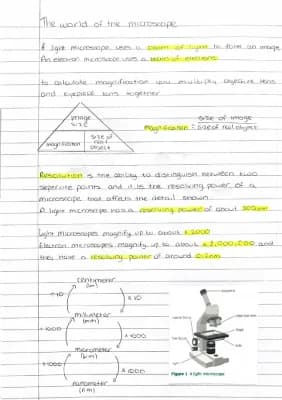 The world of the microscope
A light microscope uses a beam of light to form an image.
An electron microscope uses a beam of electrons
to calculate magnification you multiply objective lens
and eyepiece lens together
image size
magnification
size of real object
magnification = size of image
size of real object
Resolution is the ability to distinguish between two
seperate points and it is the resolving power of a
microscope that affects the detail shown
A light microscope has a resolving power of about 200nm
Light microscopes magnify up to about x 2000
Electron microscopes magnify up to about x 2,000,000 and
they have a resolving power of around 0.2nm
centimeter
(cm)
÷ 10
x 10
millimeter
(mm)
÷ 1000
x 1000
micrometer
(µm)
÷ 1000
x 1000
nanometer
(nm)
Figure 1 A light microscope